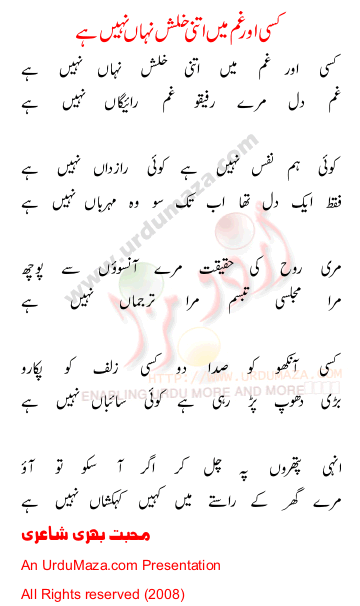 کسی اور غم میں اتنی خلش نہاں نہیں ہے
کسی اور غم میں اتنی خلش نہاں نہیں ہے
غم دل مرے رفیقو غم رائیگاں نہیں ہے
کوئی ہم نفس نہیں ہے کوئی رازداں نہیں ہے
فقط ایک دل تھا اب تک سو وہ مہرباں نہیں ہے
مری روح کی حقیقت مرے آنسوؤں سے پوچھ
مرا مجلسی تبسم مرا ترجماں نہیں ہے
کسی آنکھو کو صدا دو کسی زلف کو پکارو
بڑی دھوپ پڑ رہی ہے کوئی سائباں نہیں ہے
انہی پتھروں پہ چل کر اگر آ سکو تو آؤ
مرے گھر کے راستے میں کہیں کہکشاں نہیں ہے
محبت بھری شاعری
An UrduMaza.com Presentation
All Rights reserved (2008)
www.urdumaza.com
اردو مزا
HTTP://WWW.URDUMAZA.COM
ENABLING URDU MORE AND MORE